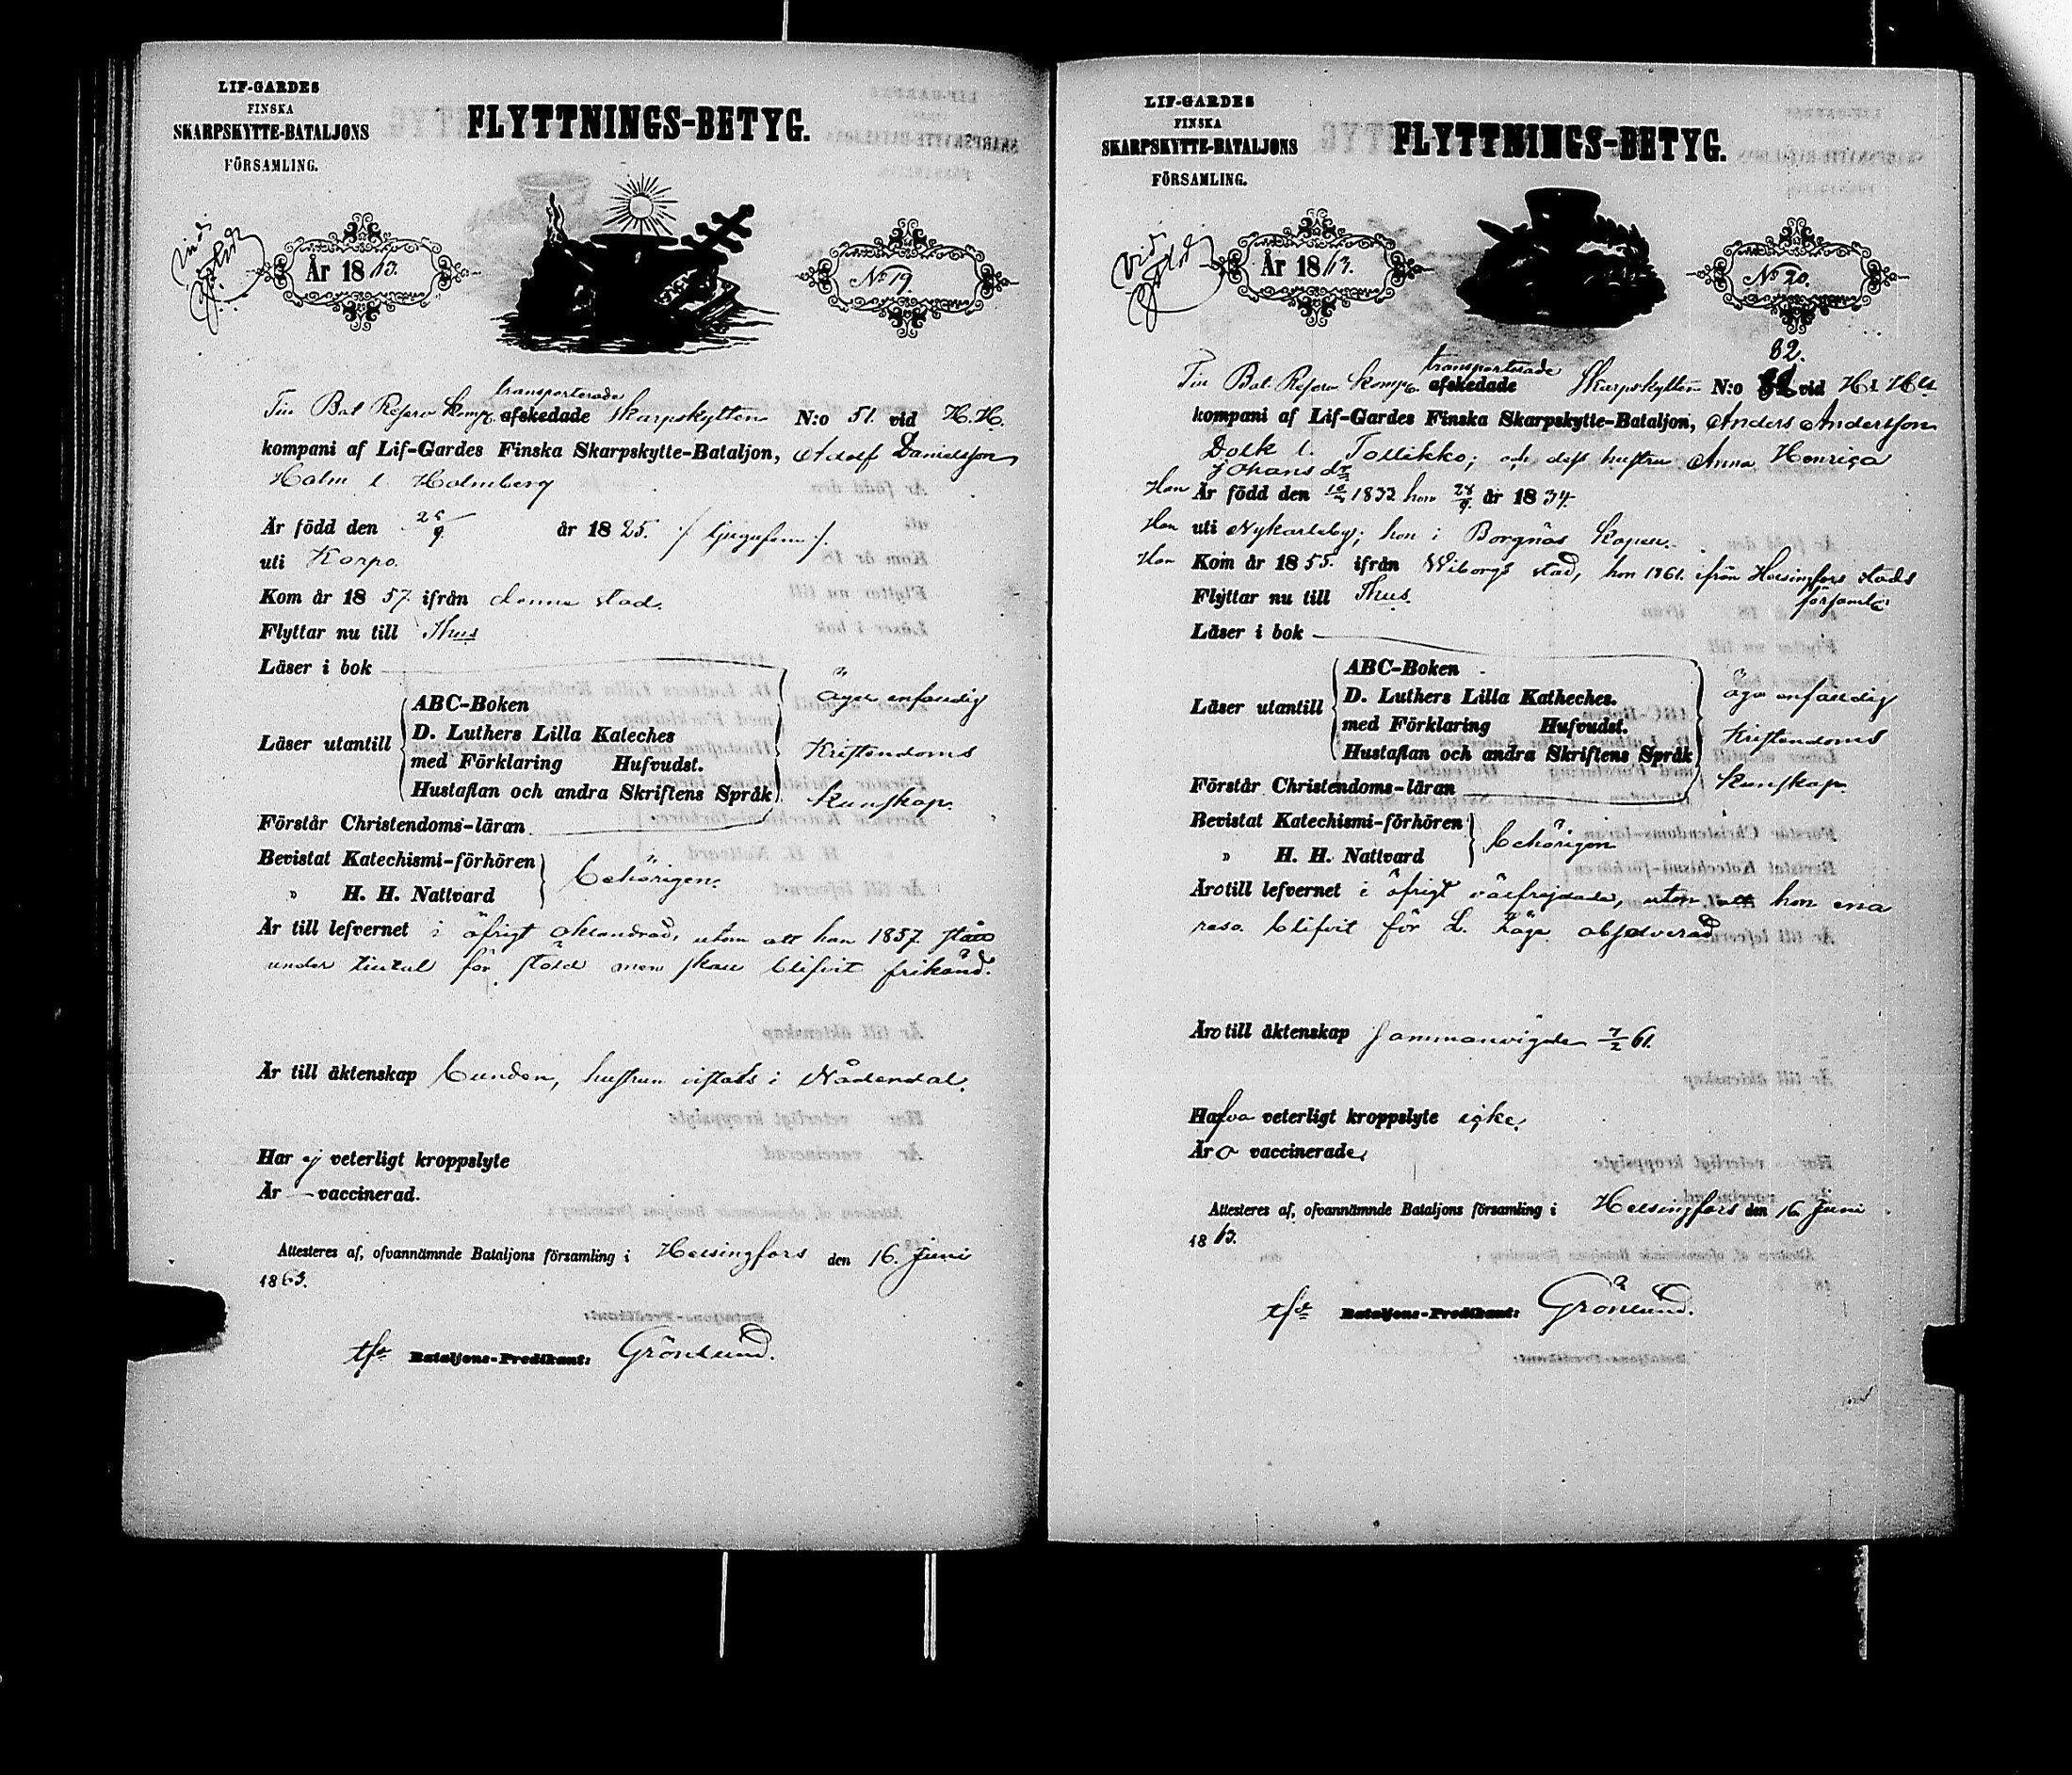 LIF-GARDES
FINSKA
SKARPSKYTTE-BATALJONS
FÖRSAMLING.
FLYTTNINGS-BETYG.
År 1863.
No 19.
transporterade
Till Bat Reserv Komp. afskedade Skarpskytten N:o 51. vid H. H.
kompani af Lif-Gardes Finska Skarpskytte-Bataljon, Adolf Danielsson
Holm l. Holmberg
Är född den 25/9 år 1825.
uti Korpo.
Kom år 1857. ifrån denna stad.
Flyttar nu till Thus
Läser i bok
ABC-Boken
D. Luthers Lilla Kateches
Läser utantill
med Förklaring Hufvudst.
Hustaflan och andra Skriftens Språk
Förstår Christendoms-läran
äger enfaldig
Kristendoms
kunskap.
Bevistat Katechismi-förhören
" H. H. Nattvard
behörigen.
Är till lefvernet i öfrigt oklandrad, utom att han 1857. stått
under tilltal för stöld men skall blifvit frikänd.
Är till äktenskap bunden, hustrun vistats i Nådendal.
Har ej veterligt kroppslyte
Är – vaccinerad.
Attesteres af, ofvannämnde Bataljons församling i Helsingfors den 16. Juni
1863.
tfd Bataljons-Predikant: Grönlund.
LIF-GARDES
FINSKA
SKARPSKYTTE-BATALJONS
FÖRSAMLING.
FLYTTNINGS-BETYG.
År 1863.
No 20.
transporterade 82.
Till Bat. Reserv Komp. afskedade Skarpskytten N:o vid H. H.
kompani af Lif-Gardes Finska Skarpskytte-Bataljon, Anders Andersson
Dolk l. Tollikko; och dess hustru Anna Henrica
Johansdr
Han Är född den 1832 hon 28/9 år 1834.
Han uti Nykarleby; hon i Borgnäs Kapell.
Han Kom år 1855. ifrån Wiborgs stad, hon 1861. ifrån Helsingfors stads
församl.
Flyttar nu till Thus.
Läser i bok
ABC-Boken
D. Luthers Lilla Katheches.
Läser utantill
med Förklaring Hufvudst.
Hustaflan och andra Skriftens Språk
Förstår Christendoms-läran
äga enfaldig
Kristendoms
kunskap.
Bevistat Katechismi-förhören
" H. H. Nattvard
behörigen
Äro till lefvernet i öfrigt välfrejdade, utom att hon ena
resa blifvit för L. Läge absolverad
Äro till äktenskap sammanvigde 7/2 61.
Hafva veterligt kroppslyte icke.
Äro vaccinerade.
Attesteres af, ofvannämnde Bataljons församling i Helsingfors den 16. Juni
1863.
tfd Bataljons-Predikant: Grönlund.